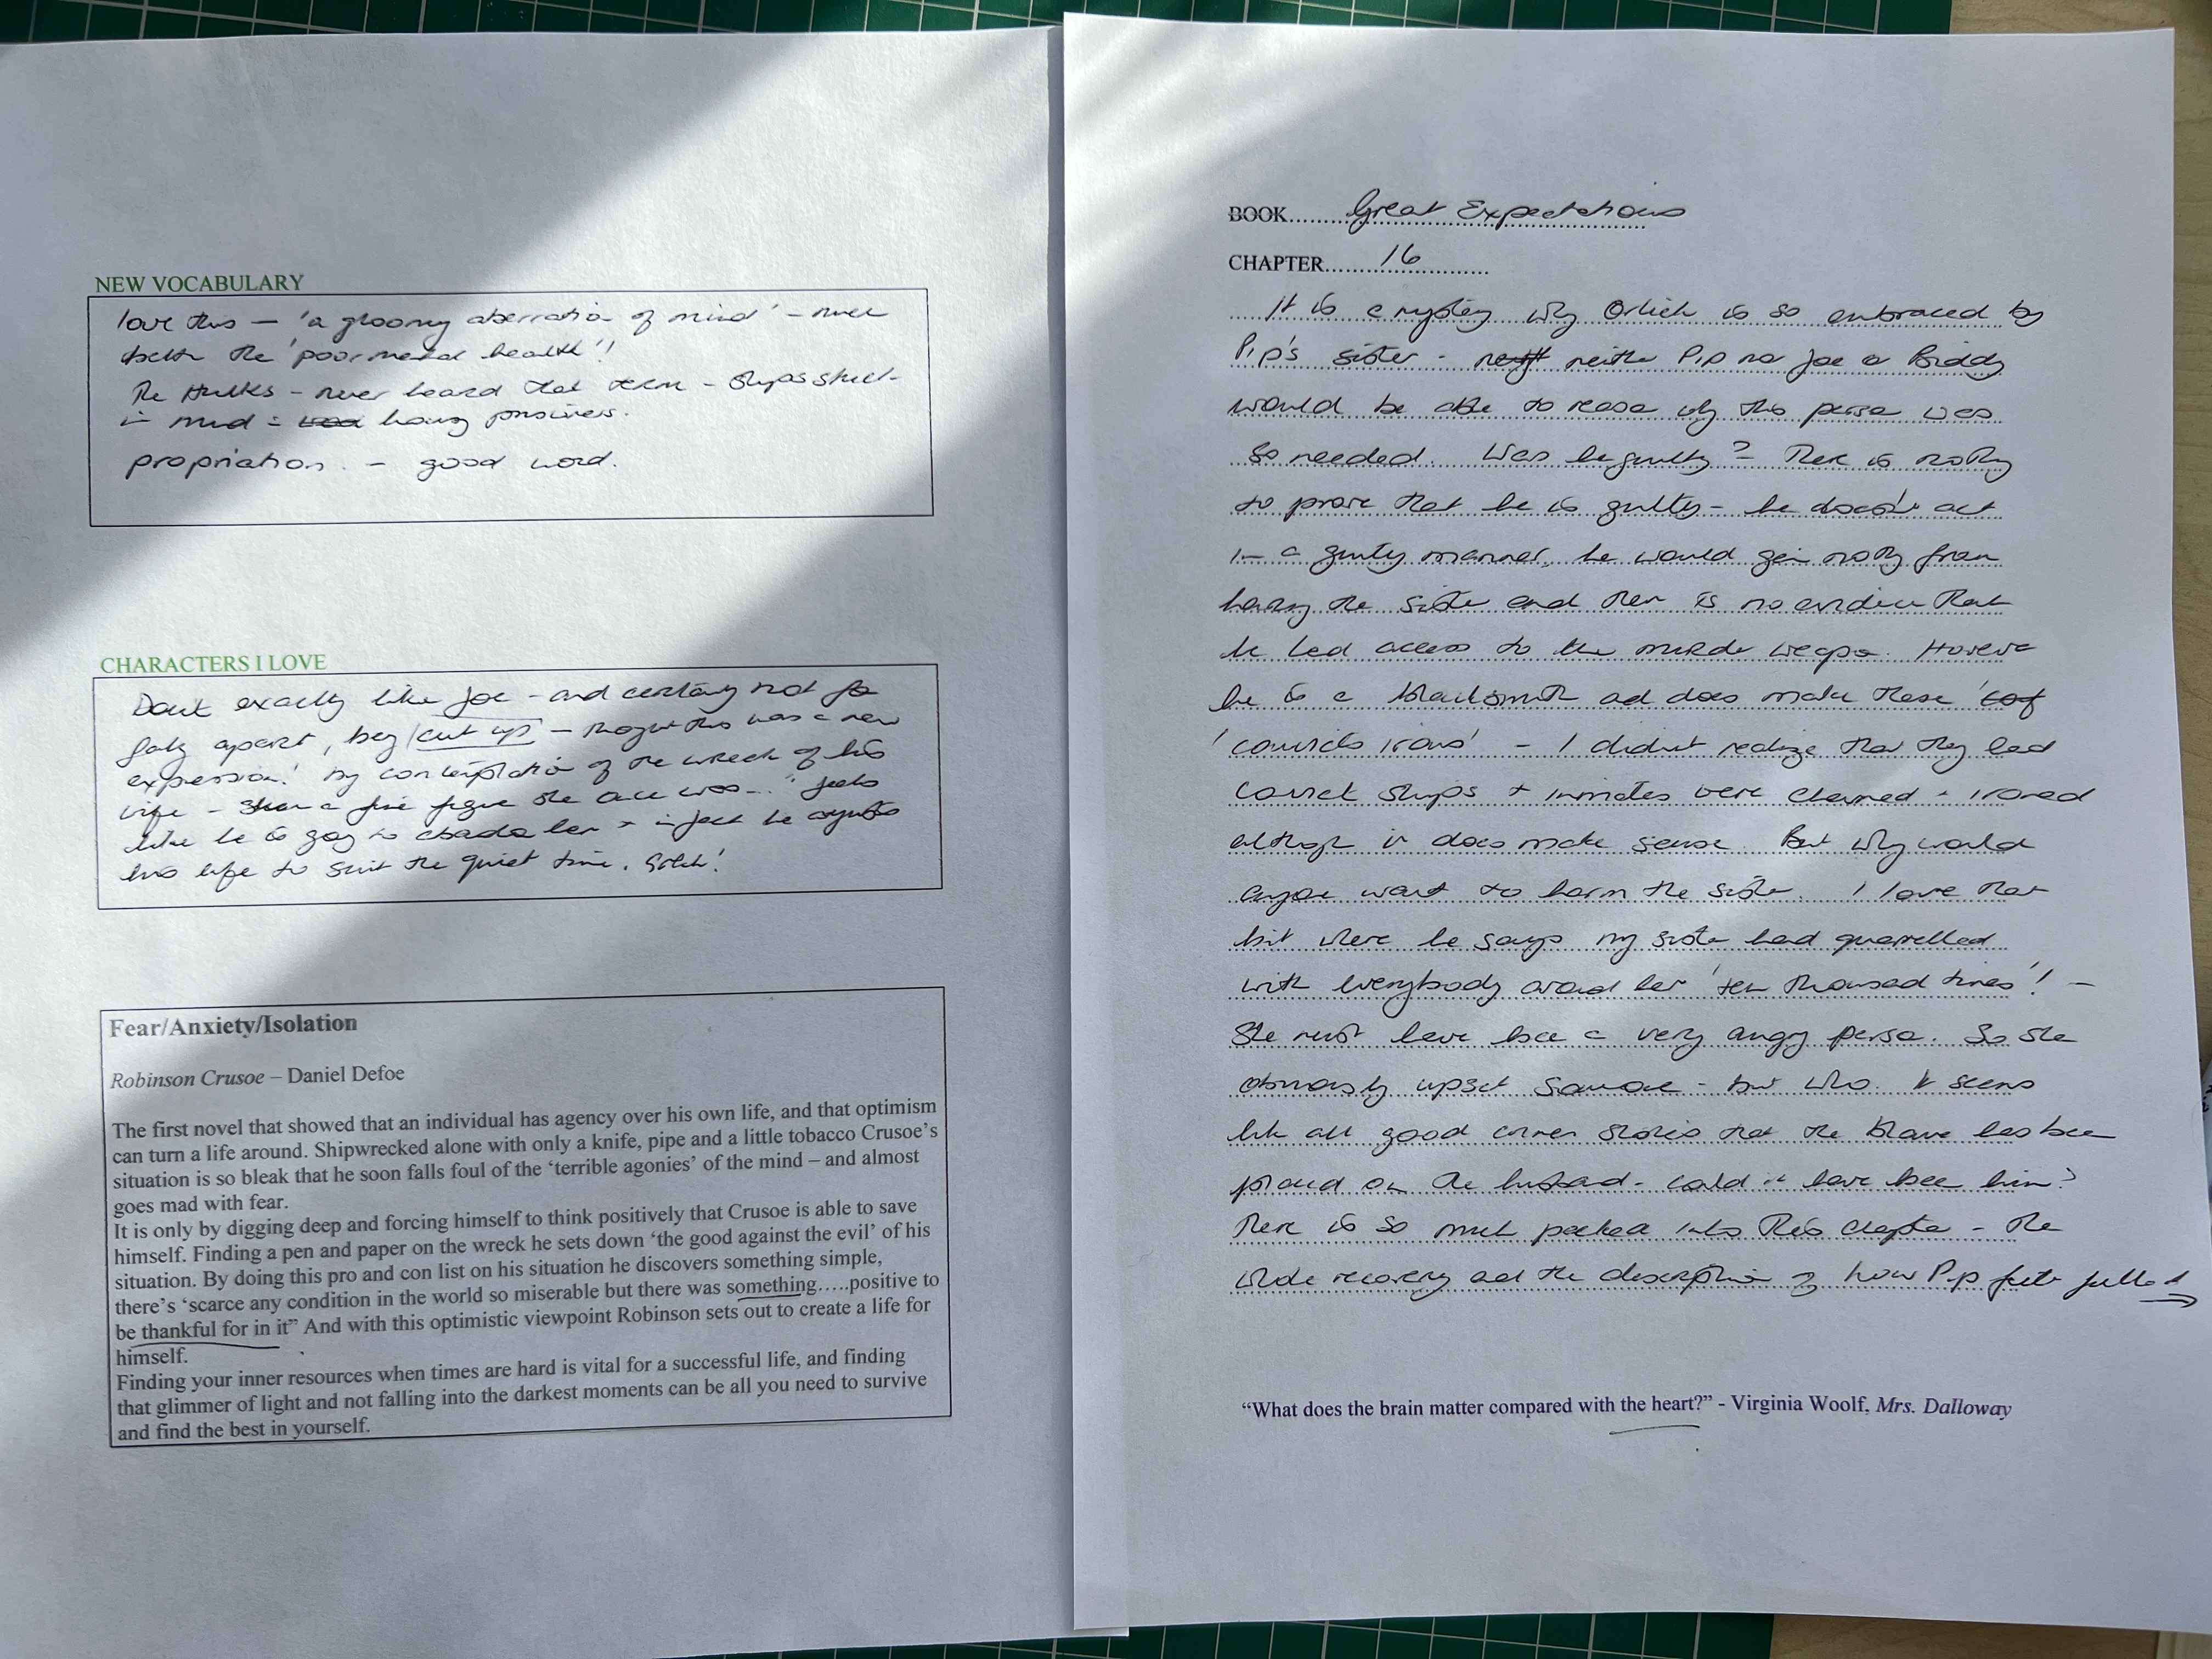 NEW VOCABULARY
love this – 'a gloomy aberration of mind' – much
better the 'poor mental health'!
The Hulks – never heard that term – ships stuck
in mud = housing prisoners.
propriation. – good word.
CHARACTERS I LOVE
Don't exactly like Joe – and certainly not for
falling apart, being /cut up – thought this was a new
expression! by contemplation of the wreck of his
wife – a fine figure she once was...' feels
like he is going to abandon her + in fact he
his life to suit the quiet time.
Fear/Anxiety/Isolation
Robinson Crusoe – Daniel Defoe
The first novel that showed that an individual has agency over his own life, and that optimism
can turn a life around. Shipwrecked alone with only a knife, pipe and a little tobacco Crusoe's
situation is so bleak that he soon falls foul of the 'terrible agonies' of the mind – and almost
goes mad with fear.
It is only by digging deep and forcing himself to think positively that Crusoe is able to save
himself. Finding a pen and paper on the wreck he sets down 'the good against the evil' of his
situation. By doing this pro and con list on his situation he discovers something simple,
there's 'scarce any condition in the world so miserable but there was something.....positive to
be thankful for in it” And with this optimistic viewpoint Robinson sets out to create a life for
himself.
Finding your inner resources when times are hard is vital for a successful life, and finding
that glimmer of light and not falling into the darkest moments can be all you need to survive
and find the best in yourself.
BOOK...... Great Expectations
CHAPTER......... 16
It is a mystery why Orlick is so embraced by
Pip's sister - neither Pip nor Joe or Biddy
would be able to reason why this person was
so needed. Was he guilty? There is nothing
to prove that he is guilty – he doesn't act
in a guilty manner, he would gain nothing from
harming the sister and there is no evidence that
he had access to the murder weapon. However
he is a blacksmith and does make these
'convicts irons' – I didn't realize that they had
convict ships + inmates were chained + ironed
although it does make sense. But why would
anyone want to harm the sister. I love that
bit where he says my sister had quarrelled
with everybody around her 'ten thousand times'! –
She must have been a very angry person. So she
obviously upset someone – but who. It seems
like all good crime stories that the blame has been
placed on the husband. Could it have been him?
There is so much packed into this chapter – the
whole recovery and the description of how Pip feels
“What does the brain matter compared with the heart?” - Virginia Woolf, Mrs. Dalloway